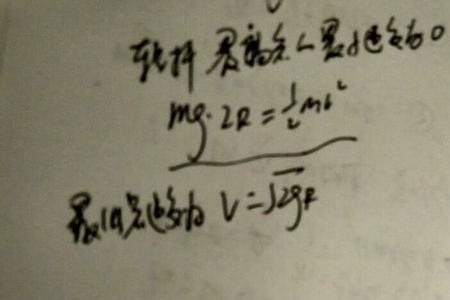 轻杆 最高点 最小速度为0
mg·2R=½mv²
最低点速度为 V=√2gR